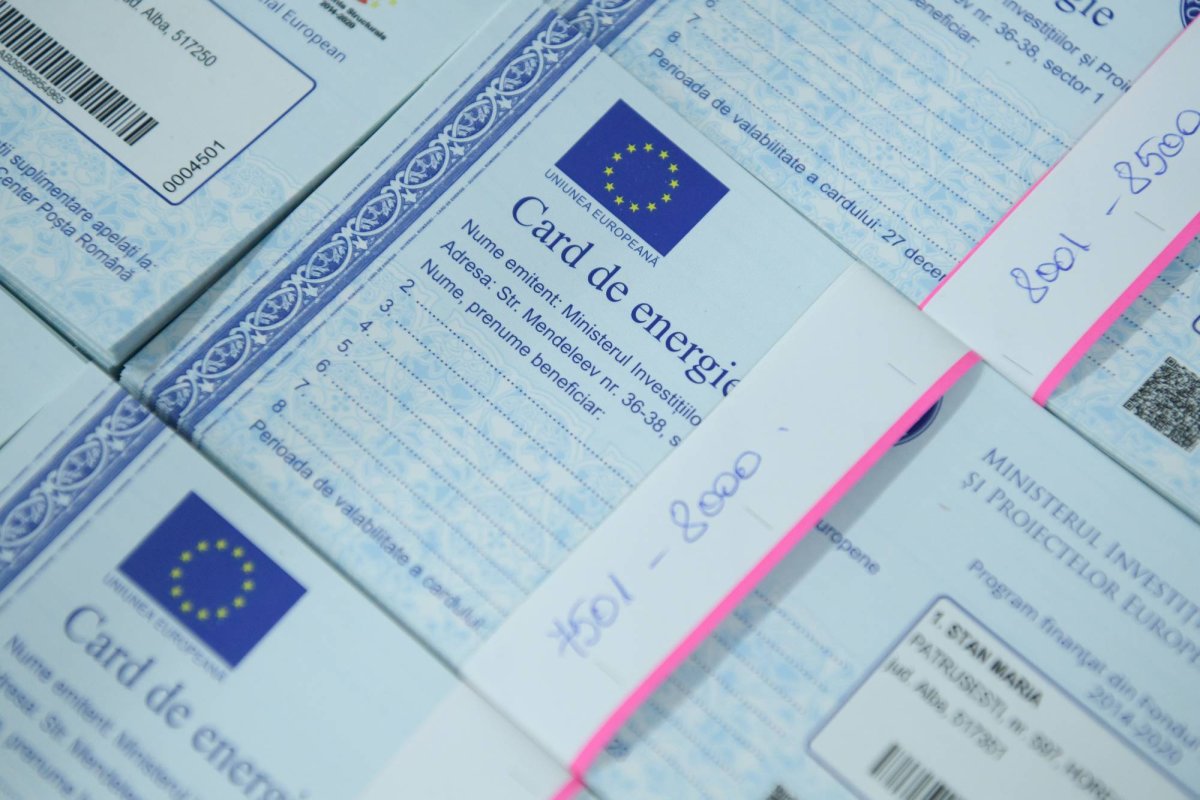 2014-2020
European
Alba, 517250
0004501
suplimentare apelați la:
Center Poșta Română
UNIUNEA EUROPEANĂ
Card de energie
Nume emitent: Ministerul Investițiilo
Adresa: Str. Mendeleev nr. 36-38, s
Nume, prenume beneficiar:
2.
3.
4.
5.
6
7
8
Perioada de valabilitate a cardului
7501 - 8000
energie
Investițiilor și Proi
nr. 36-38, sector 1
beneficiar:
6
7
8
Perioada de valabilitate a cardului: 27 decem
8001 - 8500
UNIUNEA EUROPEANĂ
Card de energ
Nume emitent: Ministerul
Adresa: Str. Mendele
prenume be
europene
MINISTERUL INVESTIȚI
ȘI PROIECTELOR EUROP
Program finanțat din Fondu
2014-2020
1. STAN MARIA
PATRUSESTI, nr. 597, HORE
jud. Alba, 517351